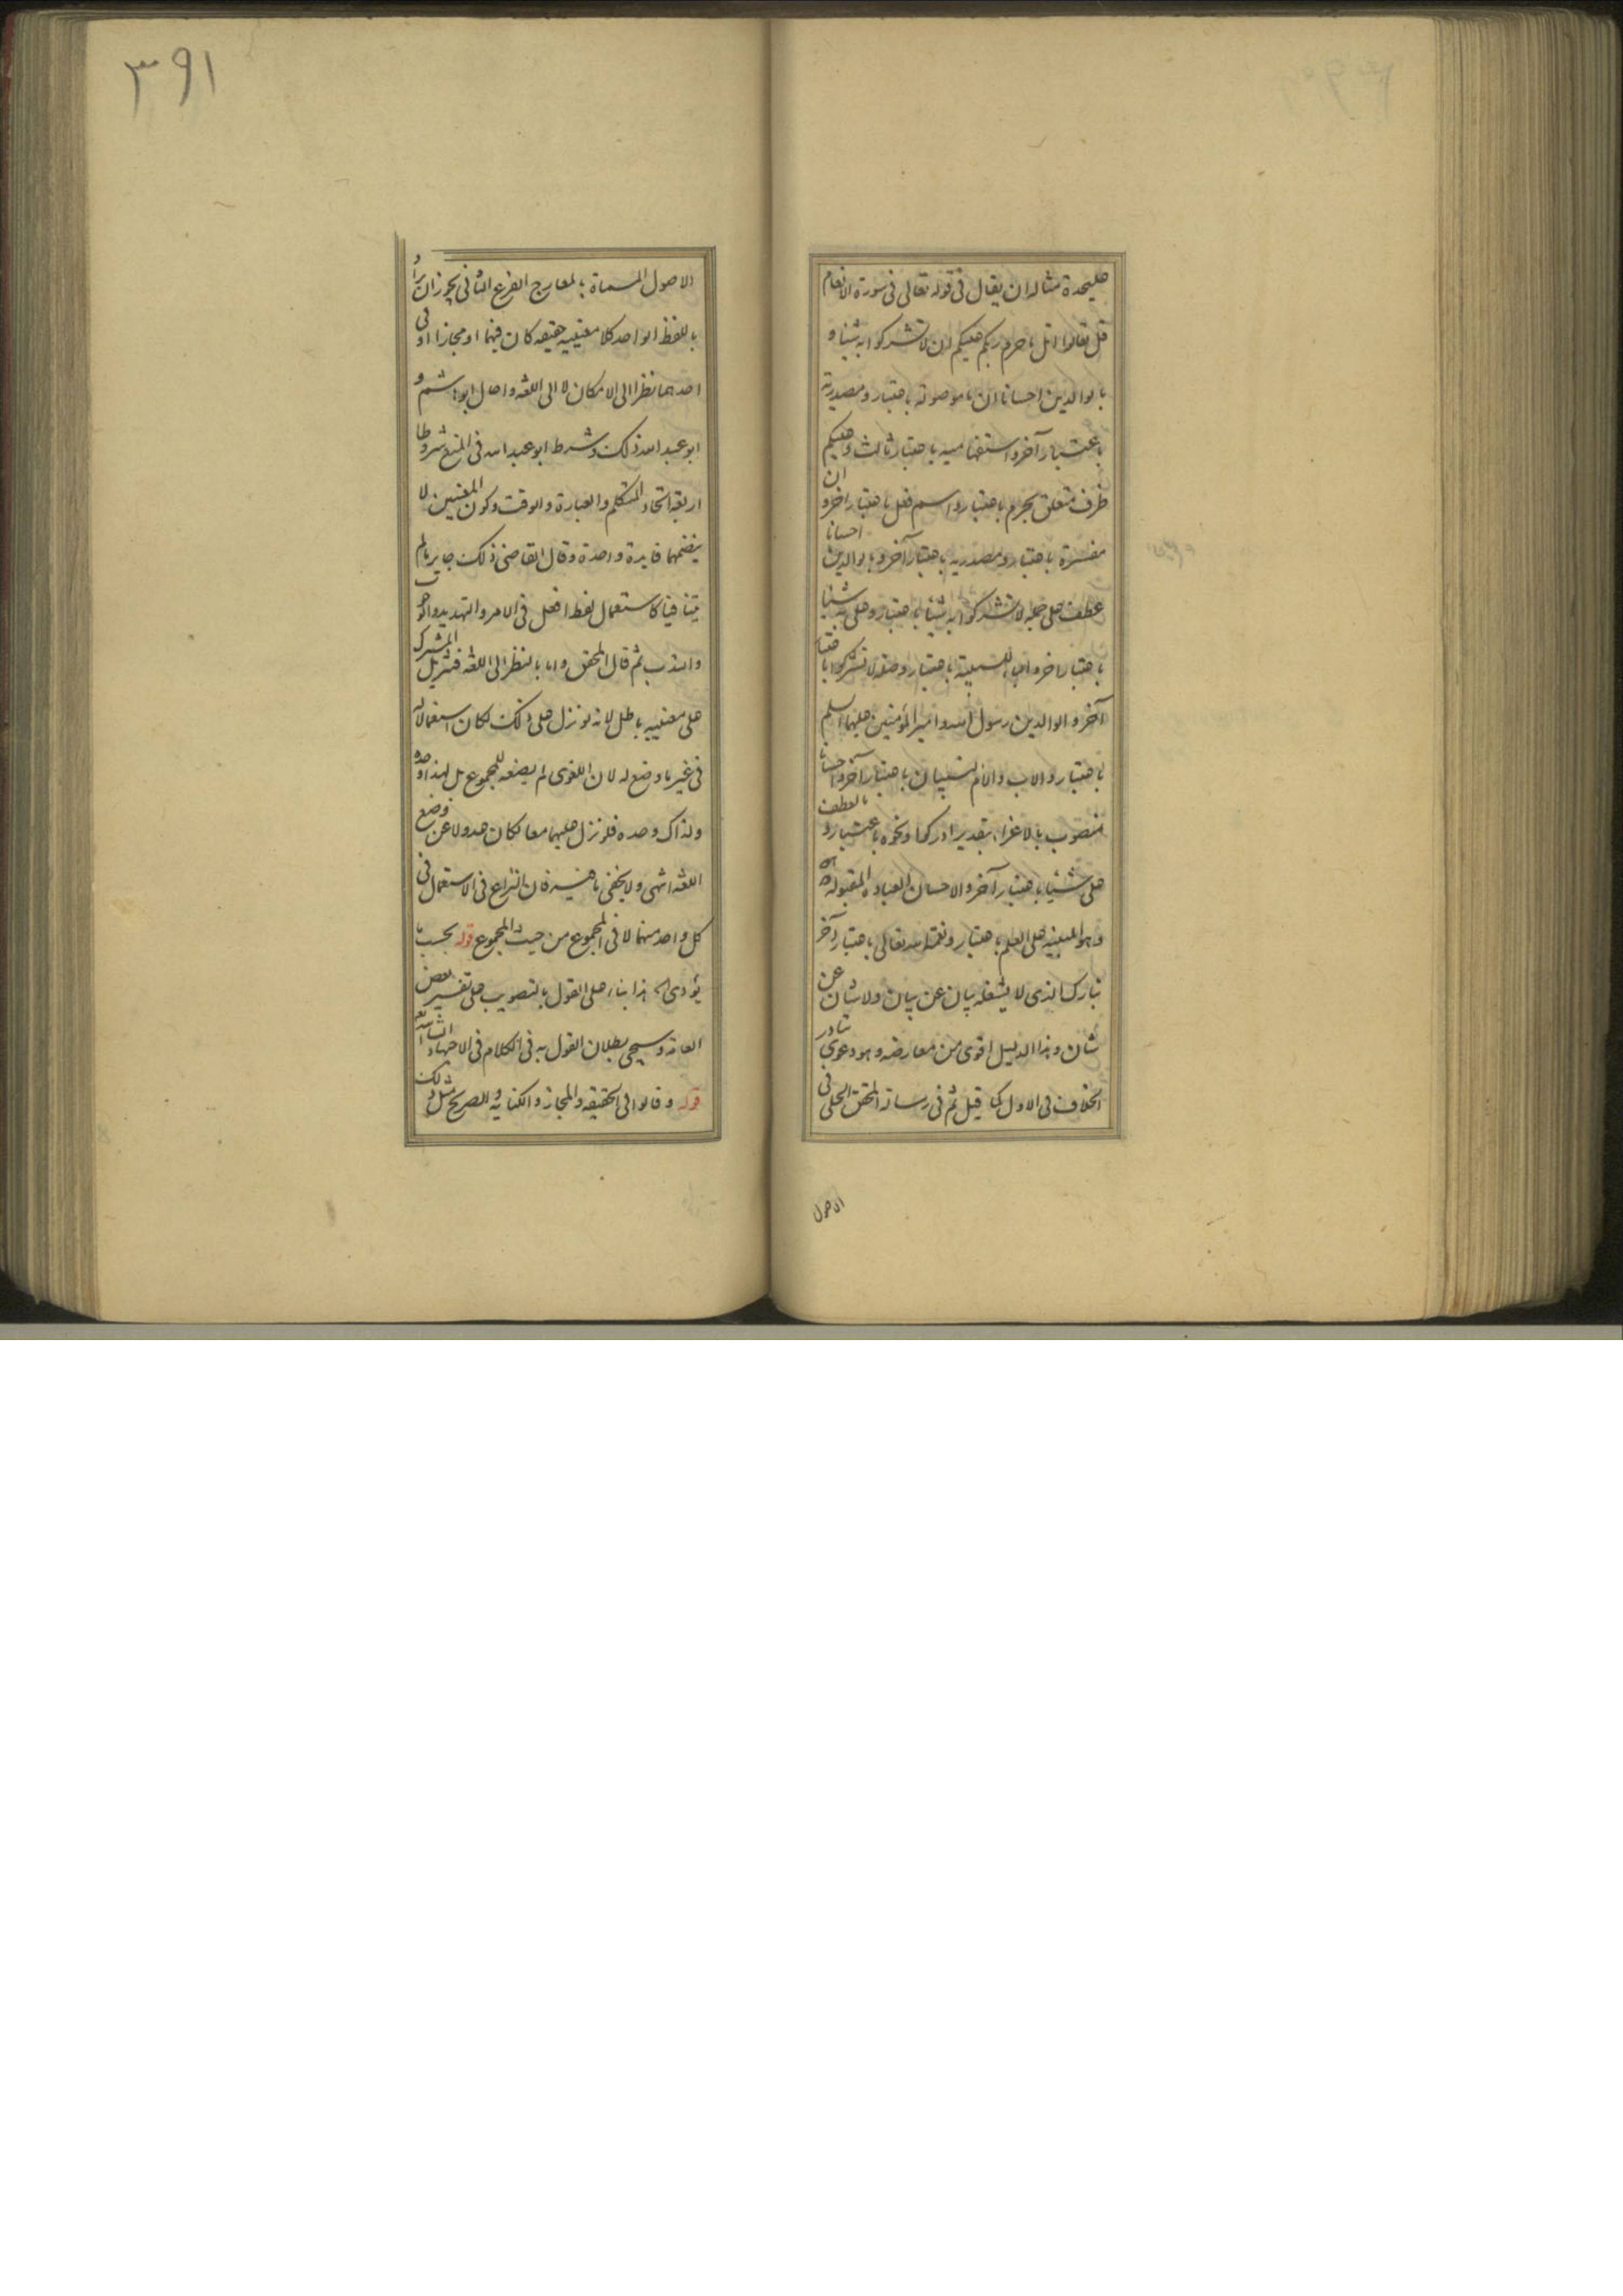 عليحدة مثاله ان يقال فى قوله تعالى فى سورة الانعام
قل تعالوا اتل ما حرم ربكم عليكم ان لا تشركوا به شيئا و
بالوالدين احسانا ان ما موصولة باعتبار ومصدرية
باعتبار آخر واستفهامية باعتبار ثالث وعليكم
ظرف متعلق بحرم باعتبار واسم فعل باعتبار اخر و ان
مفسرة باعتبار ومصدرية باعتبار آخر وبالوالدين احسانا
عطف على جملة لا تشركوا به شيئا باعتبار وعلى به شيئا
باعتبار اخر والباء للسببية باعتبار وصلة لا تشركوا باعتبار
آخر والوالدين رسول الله وامير المؤمنين عليهما السلم
باعتبار والاب والام النسبيان باعتبار آخر واحسانا
منصوب بالاغراء بتقدير ادركوا ونحوه باعتبار و بالعطف
على شيئا باعتبار آخر والاحسان العبادة المقبولة
وهو المبنية على العلم باعتبار ونعمة الله تعالى باعتبار آخر
تبارك الذى لا يشغله بيان عن بيان ولا شان عن
شان وهذا الدليل اقوى من معارضه وهو دعوى تبادر
الخلاف فى الاول كما قيل ثم فى رسالة المحقق الحلى فى
الاصول
٣٩١
الاصول المسماة بالمعارج الفرع الثانى يجوز ان يراد
باللفظ الواحد كلا معنييه حقيقه كان فيهما او مجازا او فى
احدهما نظرا الى الامكان لا الى اللغة واحال ابو هاشم و
ابو عبد الله ذلك وشرط ابو عبد الله فى المنع شروطا
اربعة اتحاد المتكلم والعبارة والوقت وكون المعنيين لا
ينضمهما فايدة واحدة وقال القاضى ذلك جايز ما لم
يتنافيا كاستعمال لفظ افعل فى الامر والتهديد والوجوب
والندب ثم قال المحقق واما بالنظر الى اللغة فتنزيل المشترك
على معنييه باطل لانه لو نزل على ذلك لكان استعمالا له
فى غير ما وضع له لان اللغوى لم يضعه للمجموع بل لهذا وحده
ولذاك وحده فلو نزل عليهما معا لكان عدولا عن وضع
اللغة انتهى ولا يخفى ما فيه فان النزاع فى الاستعمال فى
كل واحد منهما لا فى المجموع من حيث المجموع قوله بحسب ما
يؤدى اه هذا بناء على القول بالتصويب على تفسير بعض
العامة وسيجى بطلان القول به فى الكلام فى الاجتهاد
قوله وقالوا فى الحقيقة والمجاز والكناية والصريح مثل ذلك